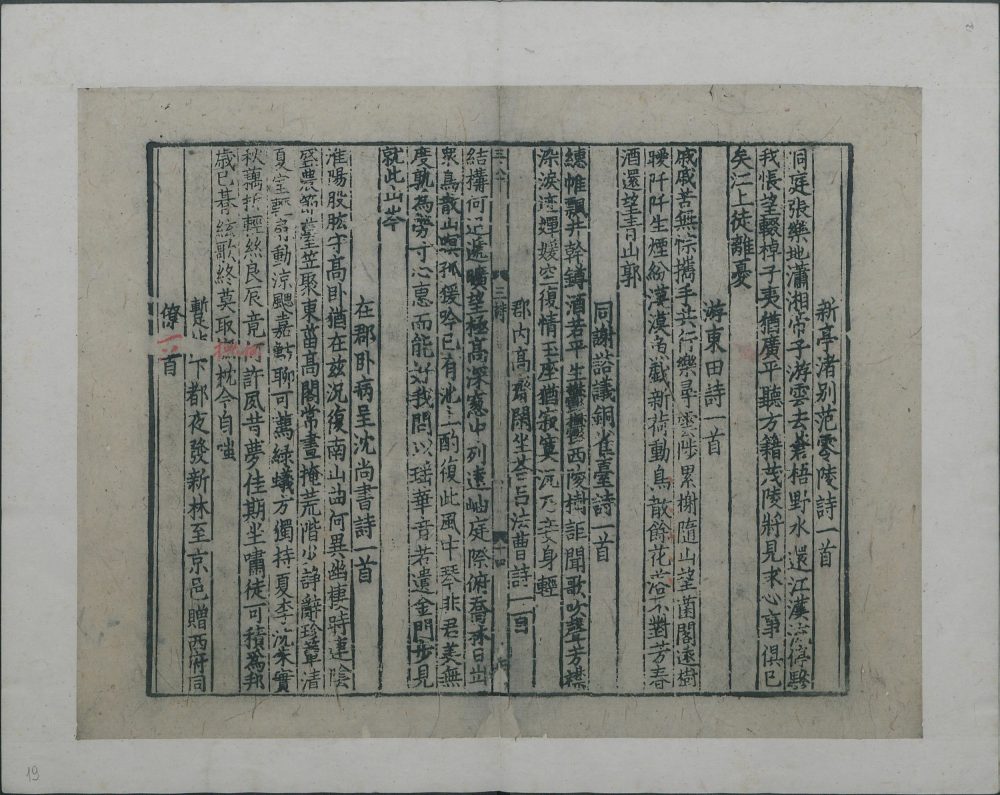 新亭渚別范零陵詩一首
洞庭張樂地瀟湘帝子游雲去蒼梧野水還江漢流停驂
我悵望輟棹子夷猶廣平聽方籍茂陵將見求心事俱已
矣江上徒離憂
游東田詩一首
戚戚苦無悰攜手共行樂尋雲陟累榭隨山望菌閣遠樹
曖阡阡生煙紛漠漠魚戲新荷動鳥散餘花落不對芳春
酒還望青山郭
同謝諮議銅雀臺詩一首
繐帷飄井幹罇酒若平生鬱鬱西陵樹詎聞歌吹聲芳襟
染淚迹嬋媛空復情玉座猶寂寞况乃妾身輕
郡內高齋閑坐荅呂法曹詩一首
三詩
十四
結構何迢遰曠望極高深窓中列遠岫庭際俯喬林日出
衆鳥散山暝孤猨吟已有池上酌復此風中琴非君美無
度孰為勞寸心惠而能好我問以瑤華音若遺金門步見
就此山岑
在郡卧病呈沈尚書詩一首
淮陽股肱守高卧猶在茲況復南山曲何異幽棲時連陰
盛農節薹笠聚東菑高閣常晝掩荒階少諍辭珍簟清
夏室輕扇動涼颸嘉魴聊可薦綠蟻方獨持夏李沈朱實
秋藕折輕絲良辰竟何許夙昔夢佳期坐嘯徒可積為邦
歲已朞絃歌終莫取撫枕令自嗤
暫使下都夜發新林至京邑贈西府同
僚一首
19